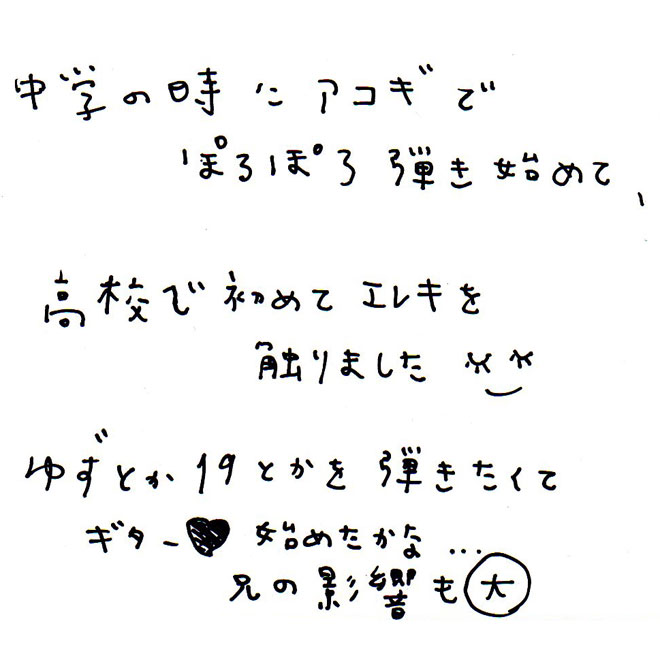 中学の時にアコギで
ぽろぽろ弾き始めて、
高校で初めてエレキを
触りました
ゆずとか19とかを弾きたくて
ギター♥始めたかな...
兄の影響も大